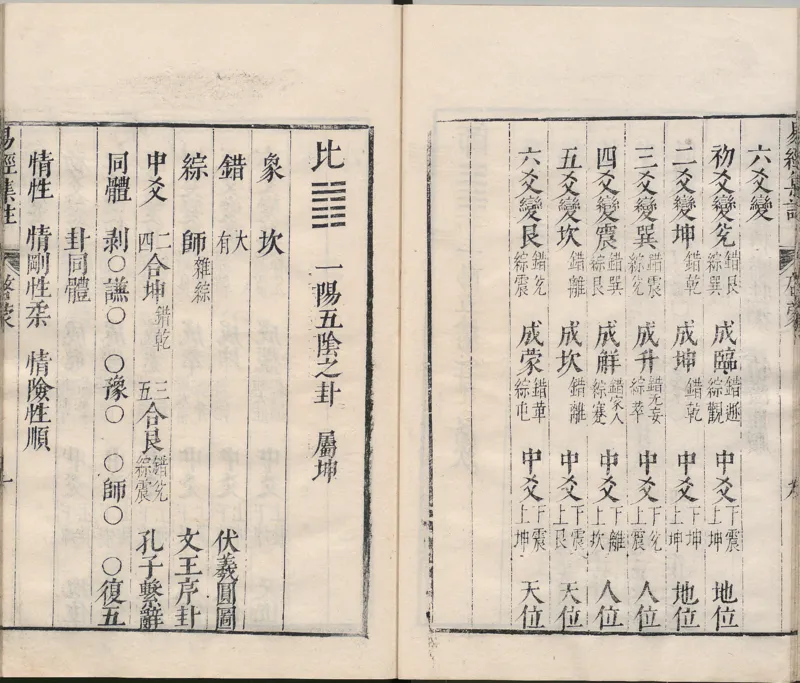 六爻變
初爻變兌 錯艮綜巽 成臨 錯遯綜觀 中爻 下震上坤 地位
二爻變坤 錯乾 成坤 錯乾 中爻 下坤上坤 地位
三爻變巽 錯震綜兌 成升 錯无妄綜萃 中爻 下兌上震 人位
四爻變震 錯巽綜艮 成解 錯家人綜蹇 中爻 下離上坎 人位
五爻變坎 錯離 成坎 錯離 中爻 下震上艮 天位
六爻變艮 錯兌綜震 成蒙 錯革綜屯 中爻 下震上坤 天位
比 ䷇ 一陽五陰之卦 屬坤
象 坎
錯 大有 伏羲圓圖
綜 師 雜綜 文王序卦
中爻 二四合坤 錯乾 三五合艮 錯兌綜震 孔子繫辭
同體 剝○謙○ ○豫○ ○師○ ○復五
卦同體
情性 情剛性柔 情險性順
易經集註